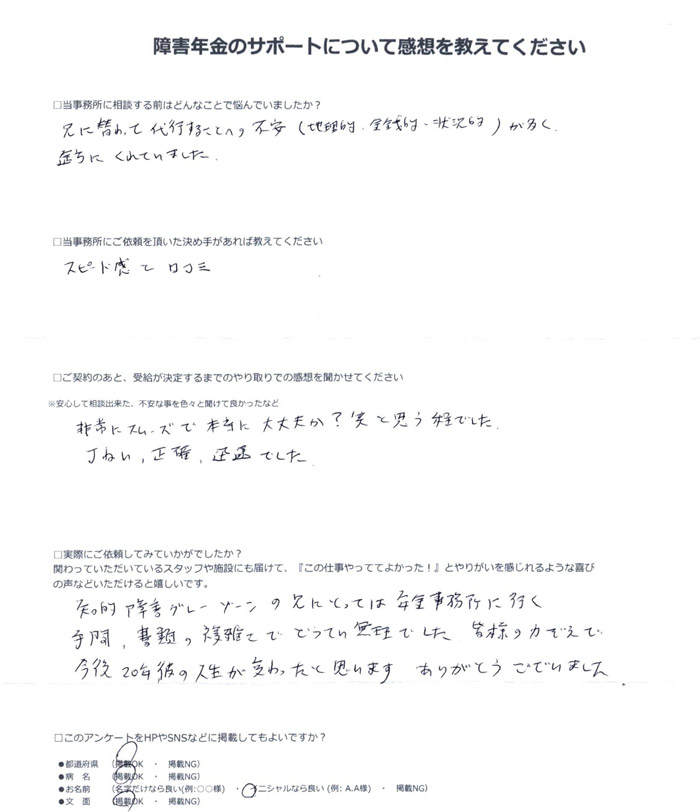 障害年金のサポートについて感想を教えてください
□当事務所に相談する前はどんなことで悩んでいましたか？
兄に替わって代行することへの不安（地理的、金銭的、状況的）が多く、
くれていました。
□当事務所にご依頼を頂いた決め手があれば教えてください
スピード感と口コミ
□ご契約のあと、受給が決定するまでのやり取りでの感想を聞かせてください
※安心して相談出来た、不安な事を色々と聞けて良かったなど
非常にスムーズで本当に大丈夫か？笑と思う程でした。
丁ねい，正確，迅速でした。
□実際にご依頼してみていかがでしたか？
関わっていただいているスタッフや施設にも届けて、『この仕事やっててよかった！』とやりがいを感じれるような喜び
の声などいただけると嬉しいです。
知的障害グレーゾーンの兄にとっては年金事務所に行く
手間，書類の複雑さでとうてい無理でした 皆様の力ぞえで
今後20年後の人生が変わったと思います ありがとうございました
□このアンケートをHPやSNSなどに掲載してもよいですか？
●都道府県 （掲載OK ・ 掲載NG）
●病 名 （掲載OK ・ 掲載NG）
●お名前 （名字だけなら良い(例:○○様) ・ イニシャルなら良い (例: A.A様) ・ 掲載NG）
●文 面 （掲載OK ・ 掲載NG）